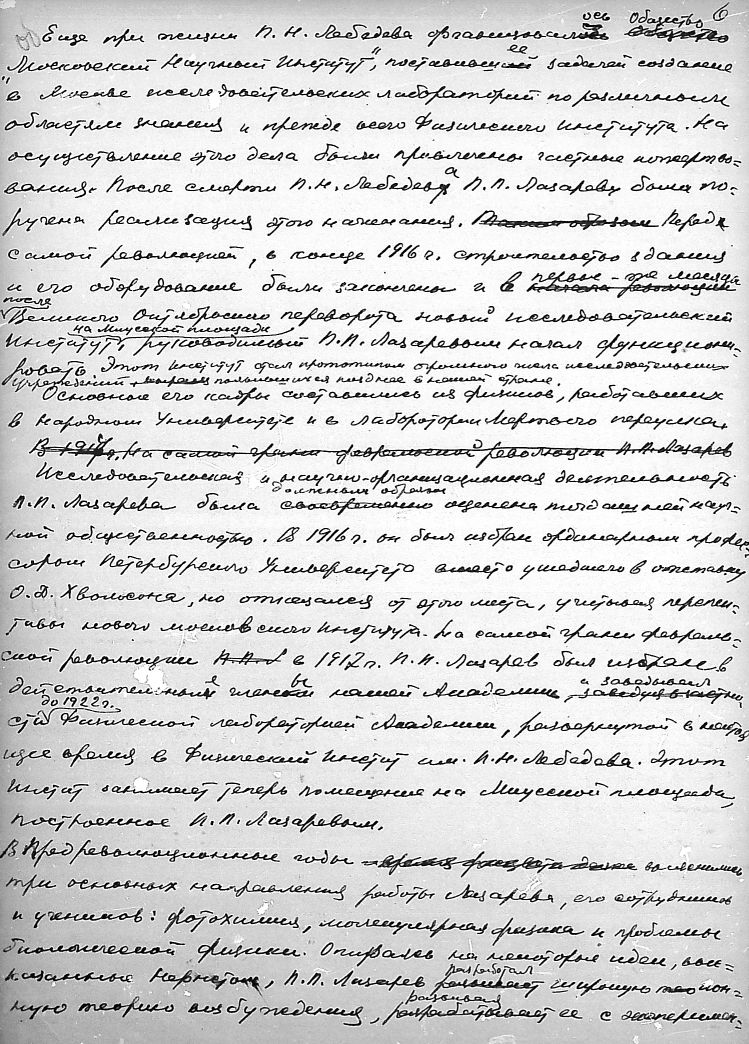 6
Еще при жизни П. Н. Лебедева организовалось Общество
"Московский Научный Институт", поставившее задачей создание
в Москве исследовательских лабораторий по различным
областям знания и прежде всего Физического института. На
осуществление этого дела были привлечены частные пожертво-
вания. После смерти П.Н. Лебедева П.П. Лазареву была по-
ручена реализация этого начинания. Таким образом Перед
самой революцией, в конце 1916 г. строительство здания
и его оборудование были закончены и в первые-же месяцы
после
Великого Октябрьского переворота новый исследовательский
на Миусской площади
институт, руководимый П.П. Лазаревым начал функциони-
ровать. Этот институт стал прототипом огромного числа исследовательских
учреждений, появившихся позднее в нашей стране.
Основные его кадры составились из физиков, работавших
в народном Университете и в лаборатории Мертвого переулка.
В 1917 г. на самой грани февральской революции П.П. Лазарев
Исследовательская и научно-организационная деятельность
должным образом
П.П. Лазарева была своевременно оценена тогдашней науч-
ной общественностью. В 1916 г. он был избран ординарным профес-
сором Петербургского Университета вместо ушедшего в отставку
О.Д. Хвольсона, но отказался от этого места, учитывая перспек-
тивы нового московского института. На самой грани февраль-
ской революции в 1917 г. П.П. Лазарев был избран в
действительные члены нашей Академии, и заведывал
до 1922 г.
Физической лабораторией Академии, развернутой в настоя-
щее время в Физический Институт им. П.Н. Лебедева. Этот
Институт занимает теперь помещение на Миусской площади,
построенное П.П. Лазаревым.
В Предреволюционные годы выяснились
три основных направления работы Лазарева, его сотрудников
и учеников: фотохимия, молекулярная физика и проблемы
биологической физики. Опираясь на некоторые идеи, выс-
казанные Нернстом, П.П. Лазарев разработал широкую ион-
ную теорию возбуждения, развивая ее с эксперимен-